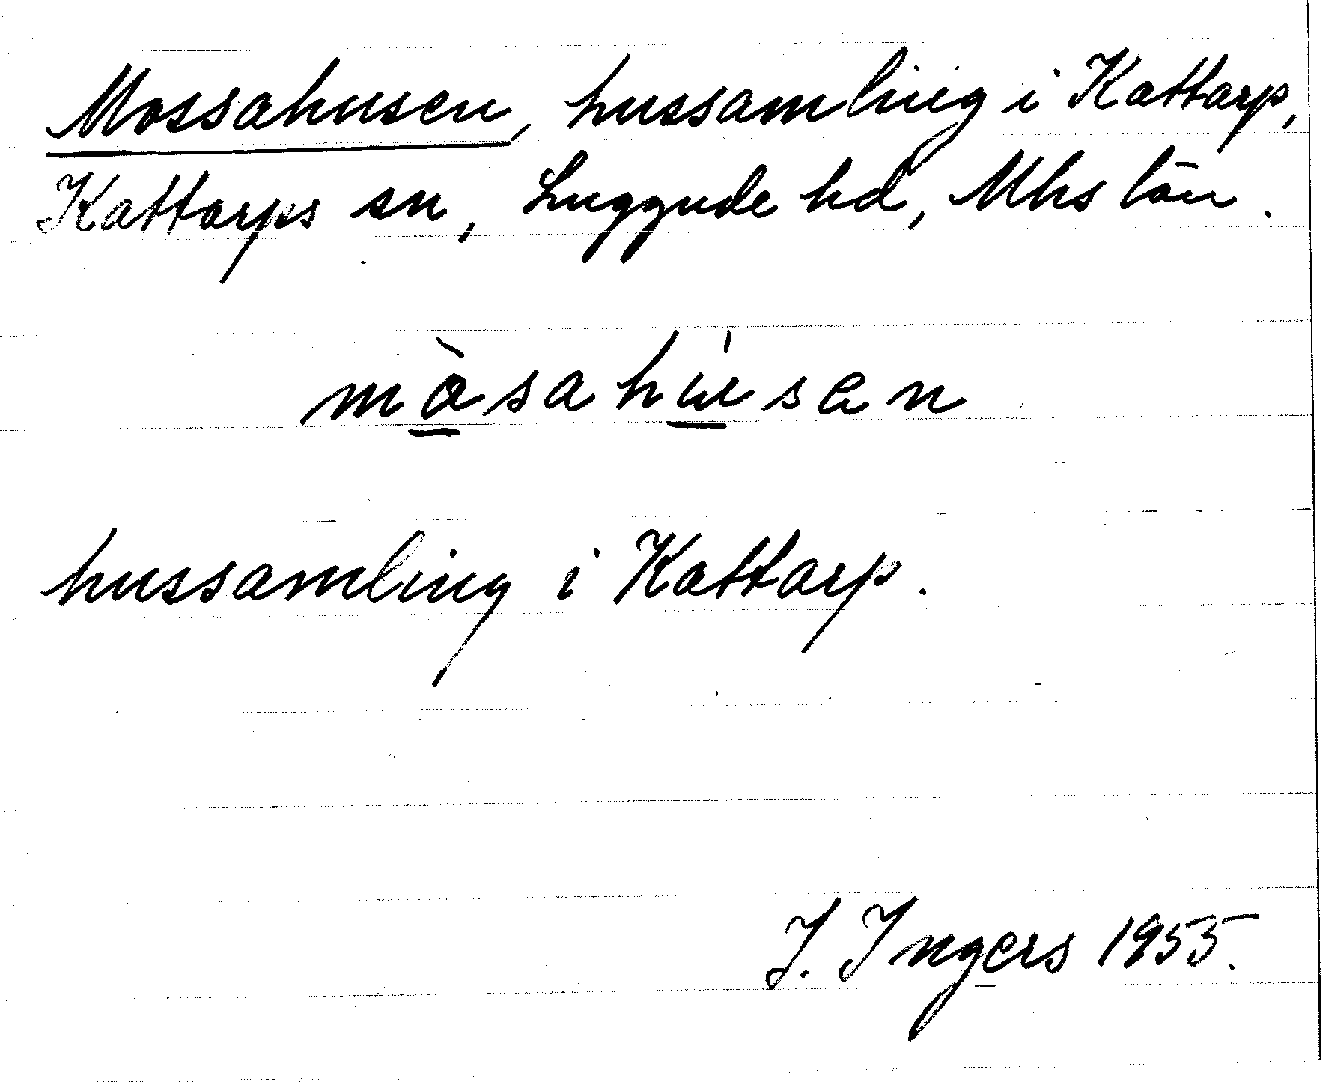 Mossahusen, hussamling i Kattarp,
Kattarps sn, Luggude hd, Mhs län.
mòsahúsen
hussamling i Kattarp.
I. Ingers 1955.